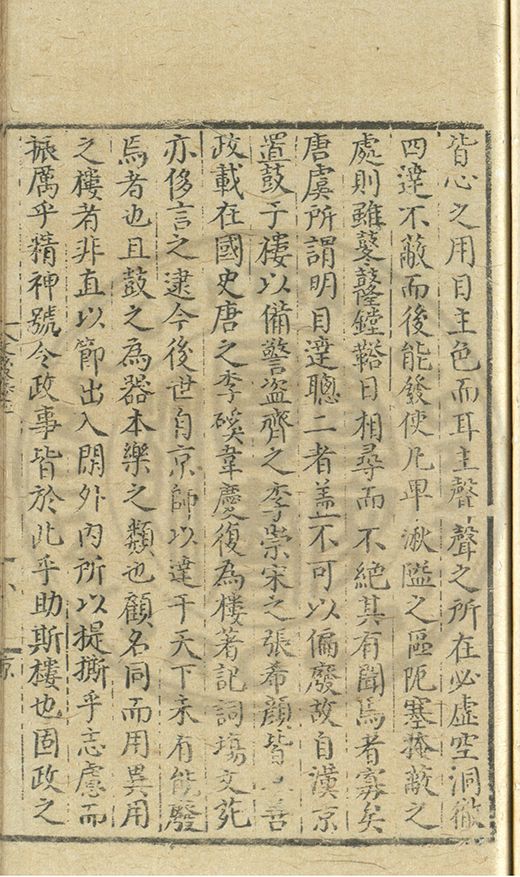 皆心之用目主色而耳主聲聲之所在必虛空洞徹
四達不蔽而後能發使凡卑湫隘之區阨塞掩蔽之
處則雖鼕鼕隆鏜鞳日相尋而不絕其有聞焉者寡矣
唐虞所謂明目達聰二者盖不可以偏廢故自漢京
置鼓于樓以備警盜齊之李崇宋之張希顔皆以善
政載在國史唐之李磎韋慶復為樓著記詞塲文苑
亦侈言之逮今後世自京師以達于天下未有能廢
焉者也且鼓之為器本樂之類也顧名同而用異用
之樓者非直以節出入閑外内所以提撕乎志慮而
振厲乎精神號令政事皆於此乎助斯樓也固政之